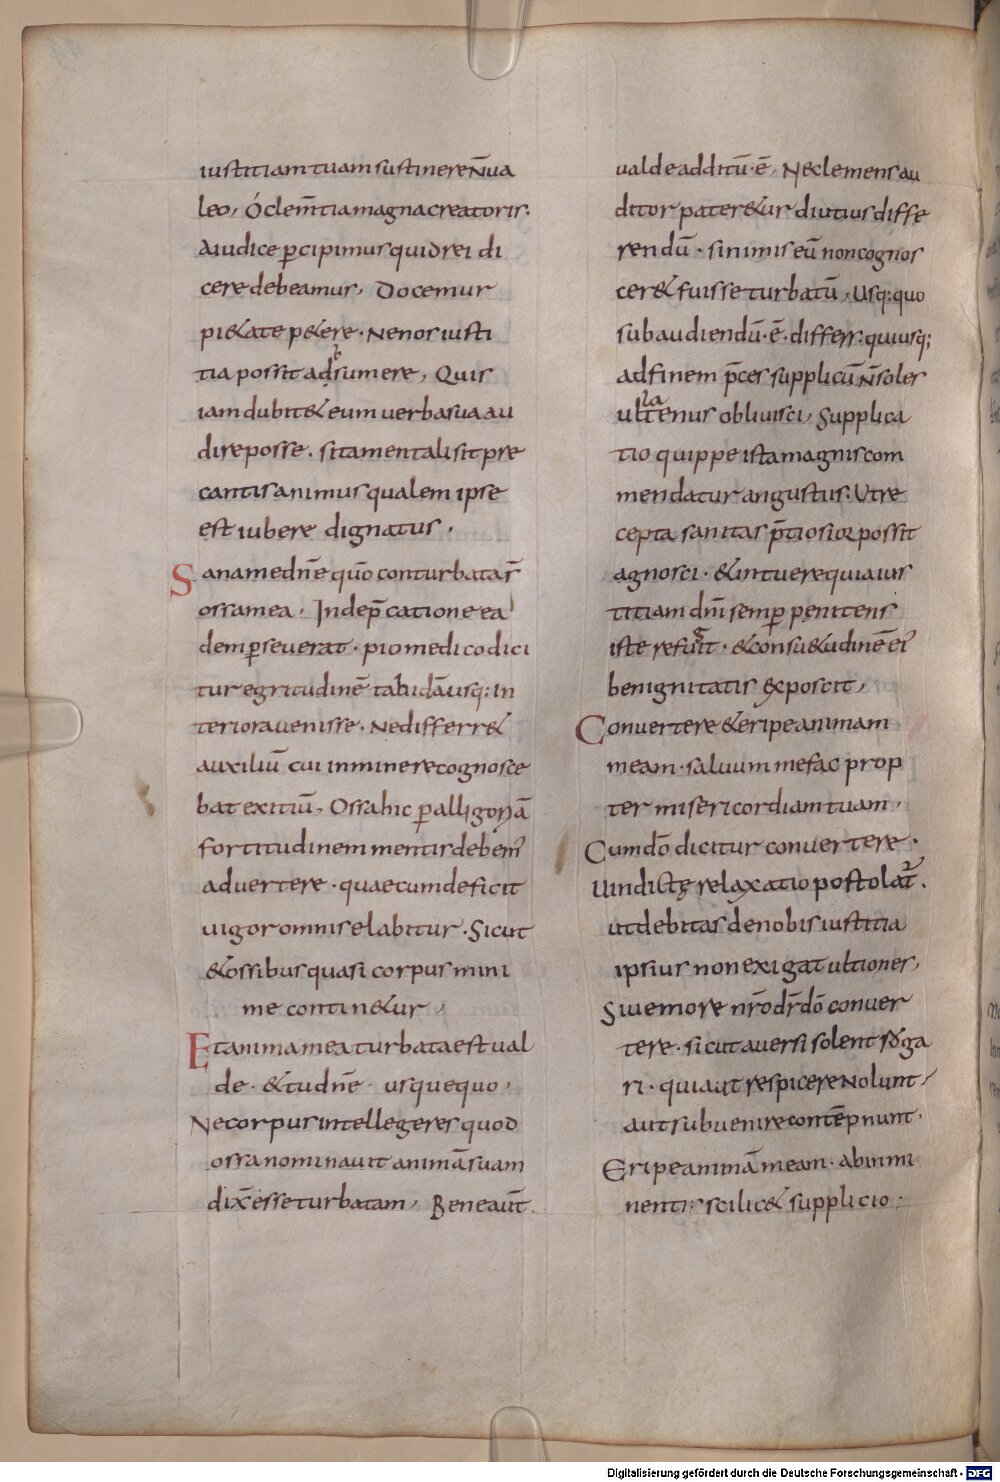 iustitiam tuam sustinere n̄ ua
leo, Ó clem̄tia magna creatoris.
A iudice p̄cipimus quid rei di
cere debeamus, Docemur
pi&ate p&ere. Ne nos iusti
tia possit adsumere, Quis
iam dubit& eum uerba sua au
dire posse. si tamen talis sit pre
cantis animus qualem ipse
est iubere dignatus.
Sana me dn̄e qūo conturbata s̄
ossa mea, In dep̄catione ea
dem p̱seuerat. pio medico dici
tur egritudinē tabidā usq; in
teriora uenisse. Ne differr&
auxiliū cui inminere cognosce
bat exitiū, Ossa hic p̱ alligoriā
fortitudinem mentis debem'
aduertere. quae cum deficit
uigor omnis elabitur. Sicut
& ossibus quasi corpus mini
me contin&ur,
Et anima mea turbata est ual
de. & tu dn̄e usque quo,
Ne corpus intellegeres quod
ossa nominauit animā suam
dix̄ esse turbatam, Bene aūt
ualde additū .ē, Ne clemens au
ditor pater&ur diutius diffe
rendū. si nimis eū non cognos
cer& fuisse turbatū, Usq; quo
subaudiendū .ē. differs: qui usq;
ad finem p̄ces supplicū n̄ soles
ullatenus obliuisci, Supplica
tio quippe ista magnis com
mendatur angustiis: Ut re
cepta sanitas p̄tiosior possit
agnosci. & intuere quia ius
titiam dn̄i semp̱ penitens
iste refugit. & consu&udinē ei'
benignitatis exposcit,
Conuertere & eripe animam
meam. saluum me fac prop
ter misericordiam tuam,
Cum dō dicitur conuertere.
uindictę relaxatio postolat̄.
ut debitas de nobis iustitia
ipsius non exigat ultiones,
Siue more nr̄o dr̄ dō conuer
tere. sicut auersi solent roga
ri. qui aut respicere nolunt,
aut subuenire contēpnunt.
Eripe animā meam. ab inmi
nenti scilic& supplicio.
Digitalisierung gefördert durch die Deutsche Forschungsgemeinschaft - DFG